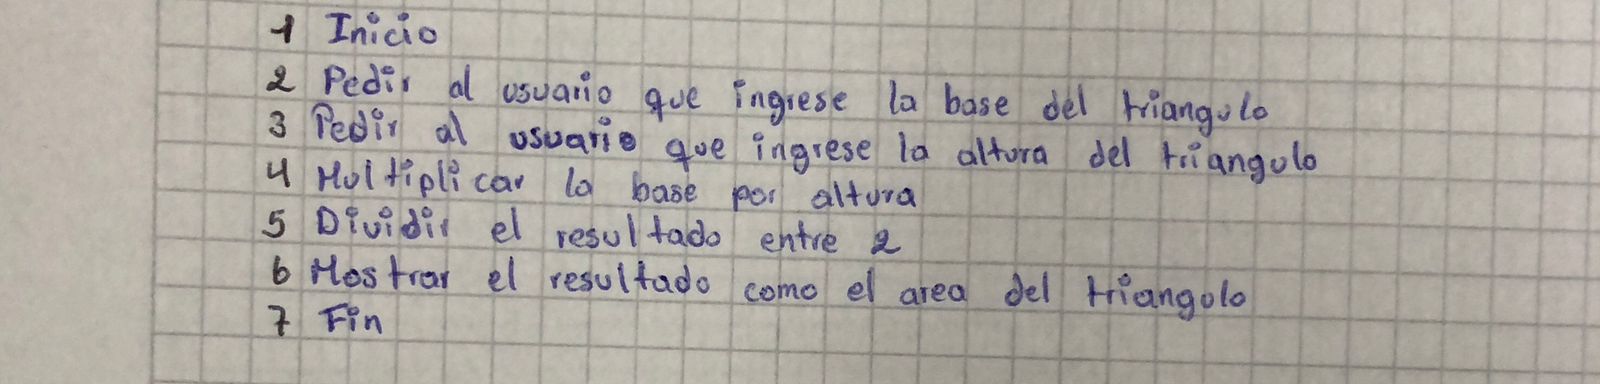 1 Inicio
2 Pedir al usuario que ingrese la base del triangulo
3 Pedir al usuario que ingrese la altura del triangulo
4 Multiplicar la base por altura
5 Dividir el resultado entre 2
6 Mostrar el resultado como el area del triangulo
7 Fin